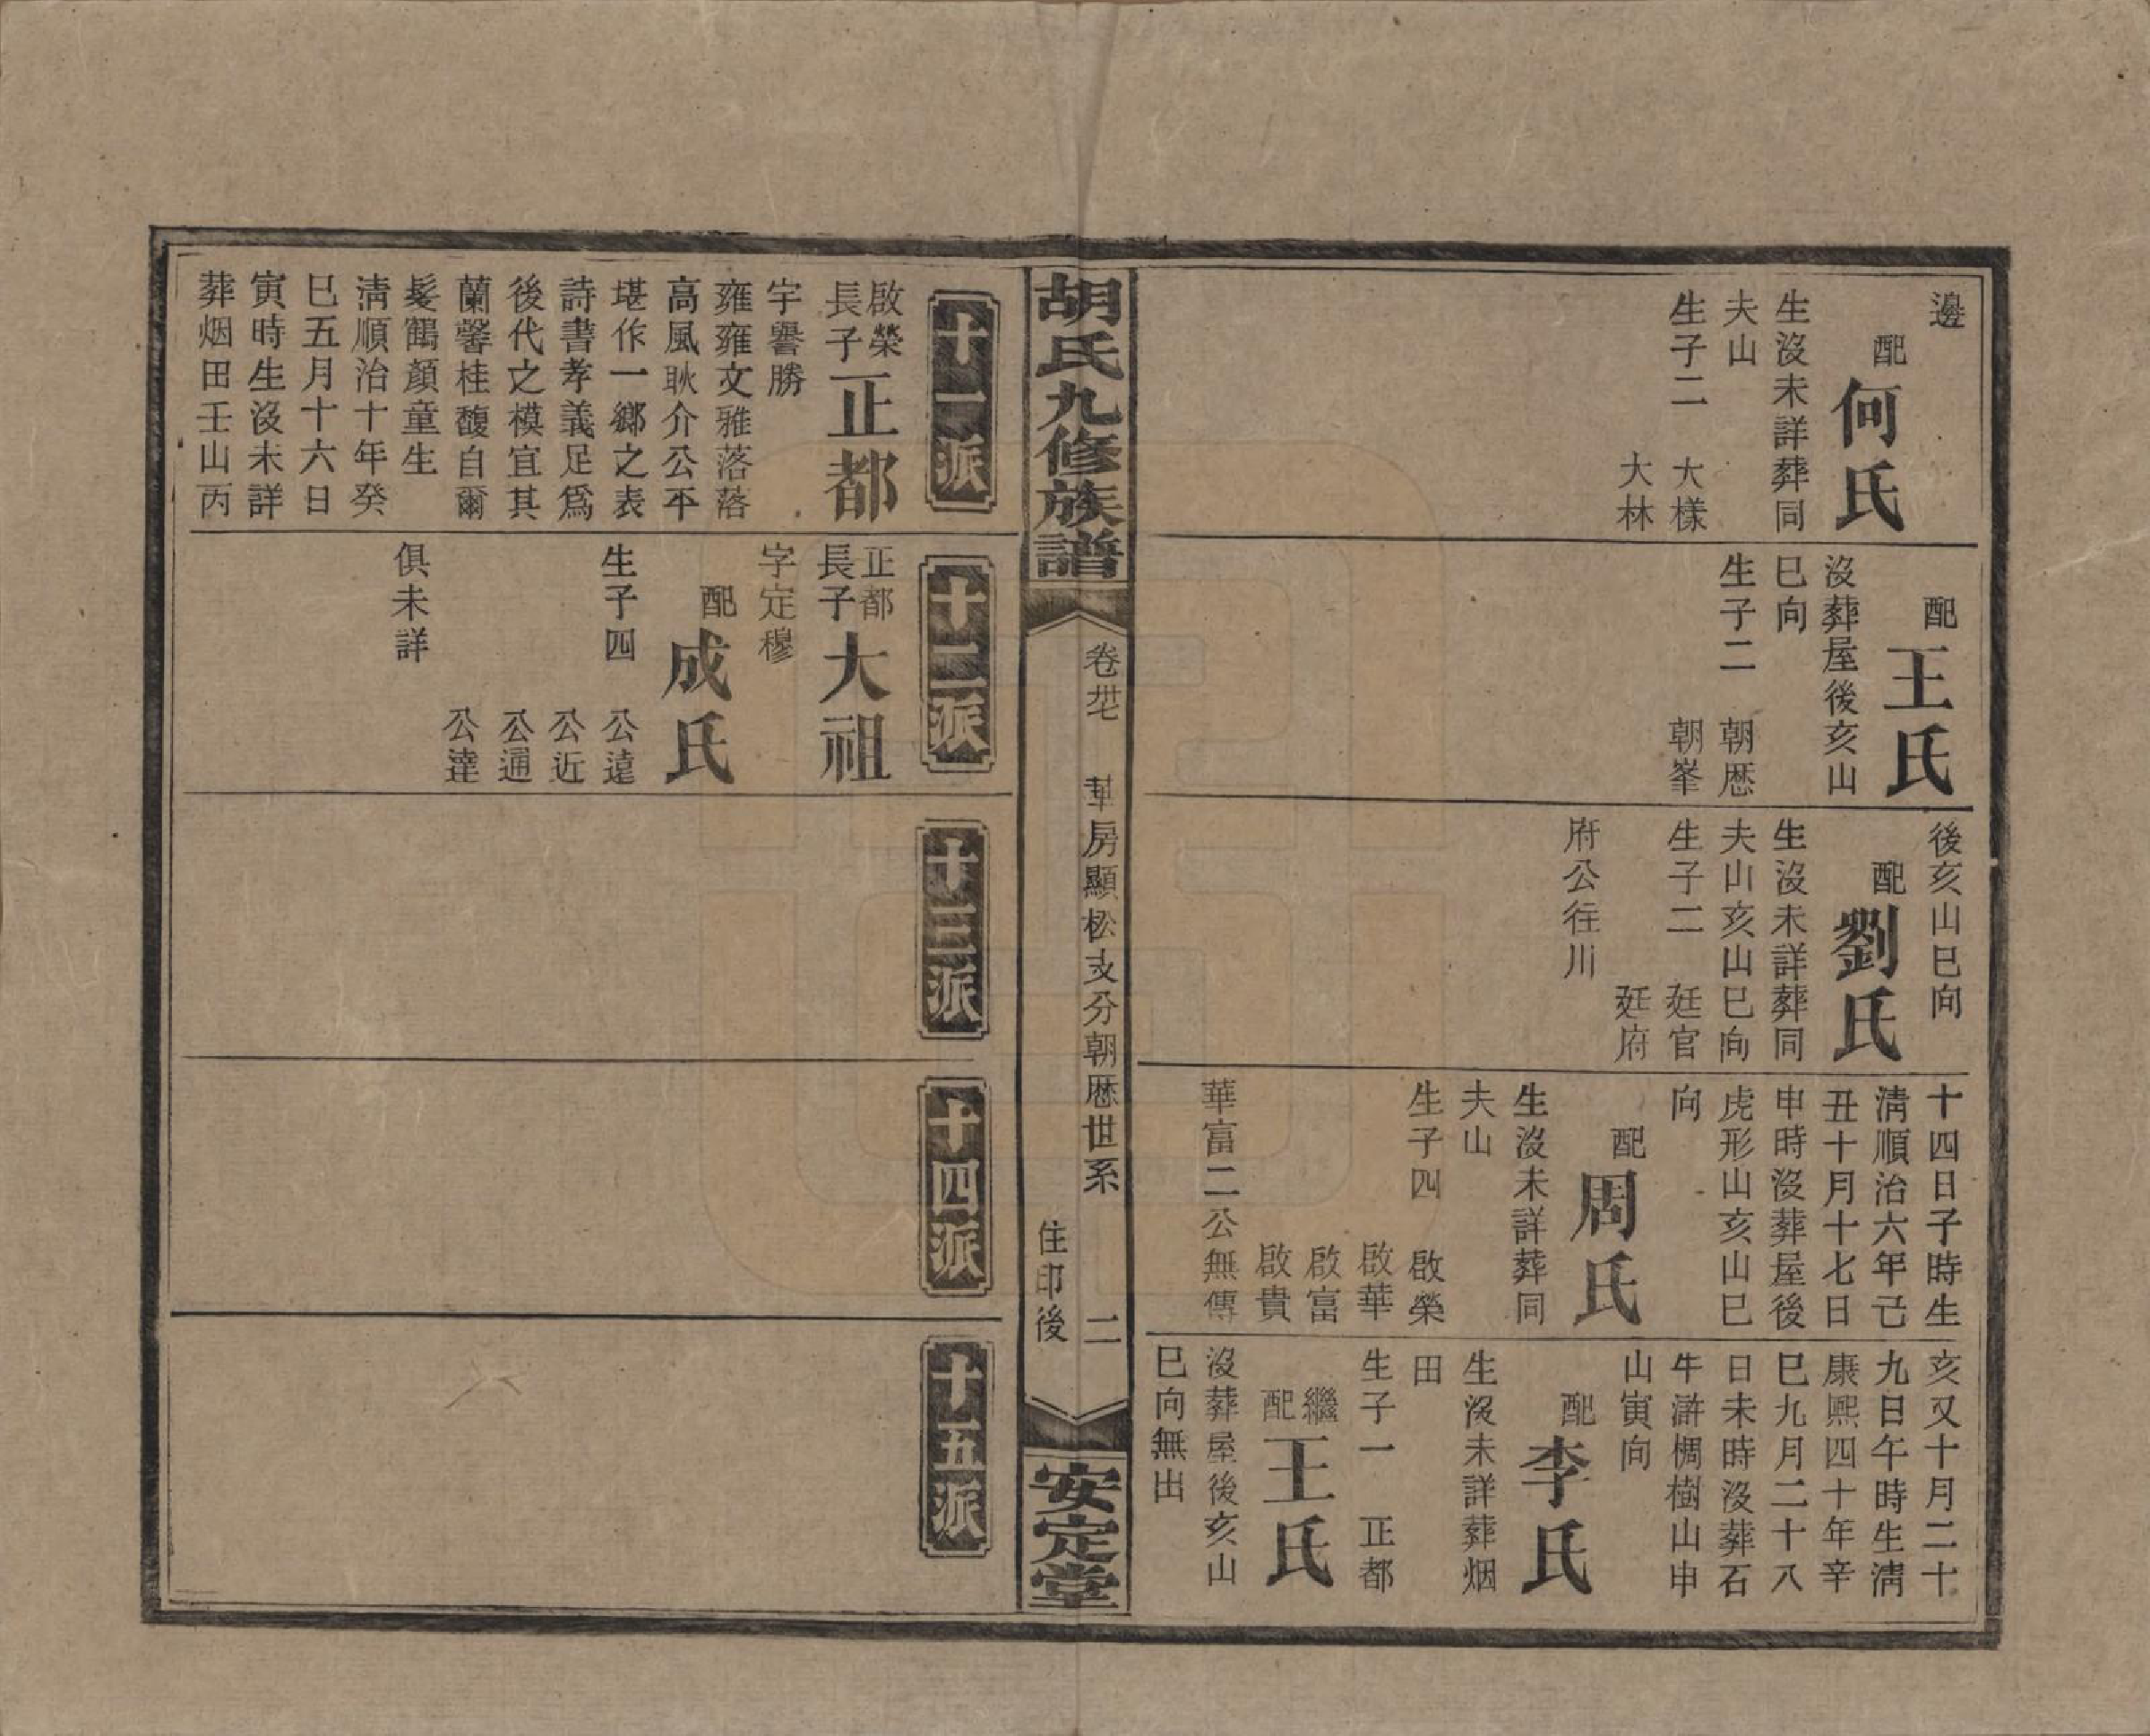 邊
配
何氏
生沒未詳葬同
夫山
生子二 大樣
大林
配
王氏
沒葬屋後亥山
巳向
生子二 朝厯
朝峯
後亥山巳向
配
劉氏
生沒未詳葬同
夫山亥山巳向
生子二 廷官
廷府
府公往川
十四日子時生
清順治六年己
丑十月十七日
申時沒葬屋後
虎形山亥山巳
向
配
周氏
生沒未詳葬同
夫山
生子四 啟榮
啟華
啟富
啟貴
華富二公無傳
亥又十月二十
九日午時生清
康熙四十年辛
巳九月二十八
日未時沒葬石
牛滸椆樹山申
山寅向
配
李氏
生沒未詳葬烟
田
生子一 正都
繼
配
王氏
沒葬屋後亥山
巳向無出
胡氏九修族譜
卷廿七 華房顯松支分朝厯世系 二
住印後
安定堂
十一派
啟榮
長子
正都
字譽勝
雍雍文雅落落
高風耿介公平
堪作一鄉之表
詩書孝義足爲
後代之模宜其
蘭馨桂馥自爾
髮鶴顏童生
清順治十年癸
巳五月十六日
寅時生沒未詳
葬烟田壬山丙
十二派
正都
長子
大祖
字定穆
配
成氏
生子四 公遠
公近
公通
公達
俱未詳
十三派
十四派
十五派